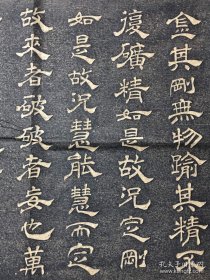 金其剛無物踰其精不
復礦精如是故況定剛
如是故況慧能慧而定
故來者破破者妄也萬